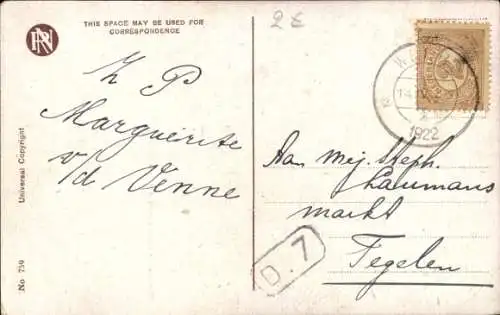 RN
THIS SPACE MAY BE USED FOR
CORRESPONDENCE
2 €
Z P
Marguerite
v/d Venne
Aan Mej. Steph.
Laumans
markt
Tegelen
D. 7
1922
Universal Copyright
No 759